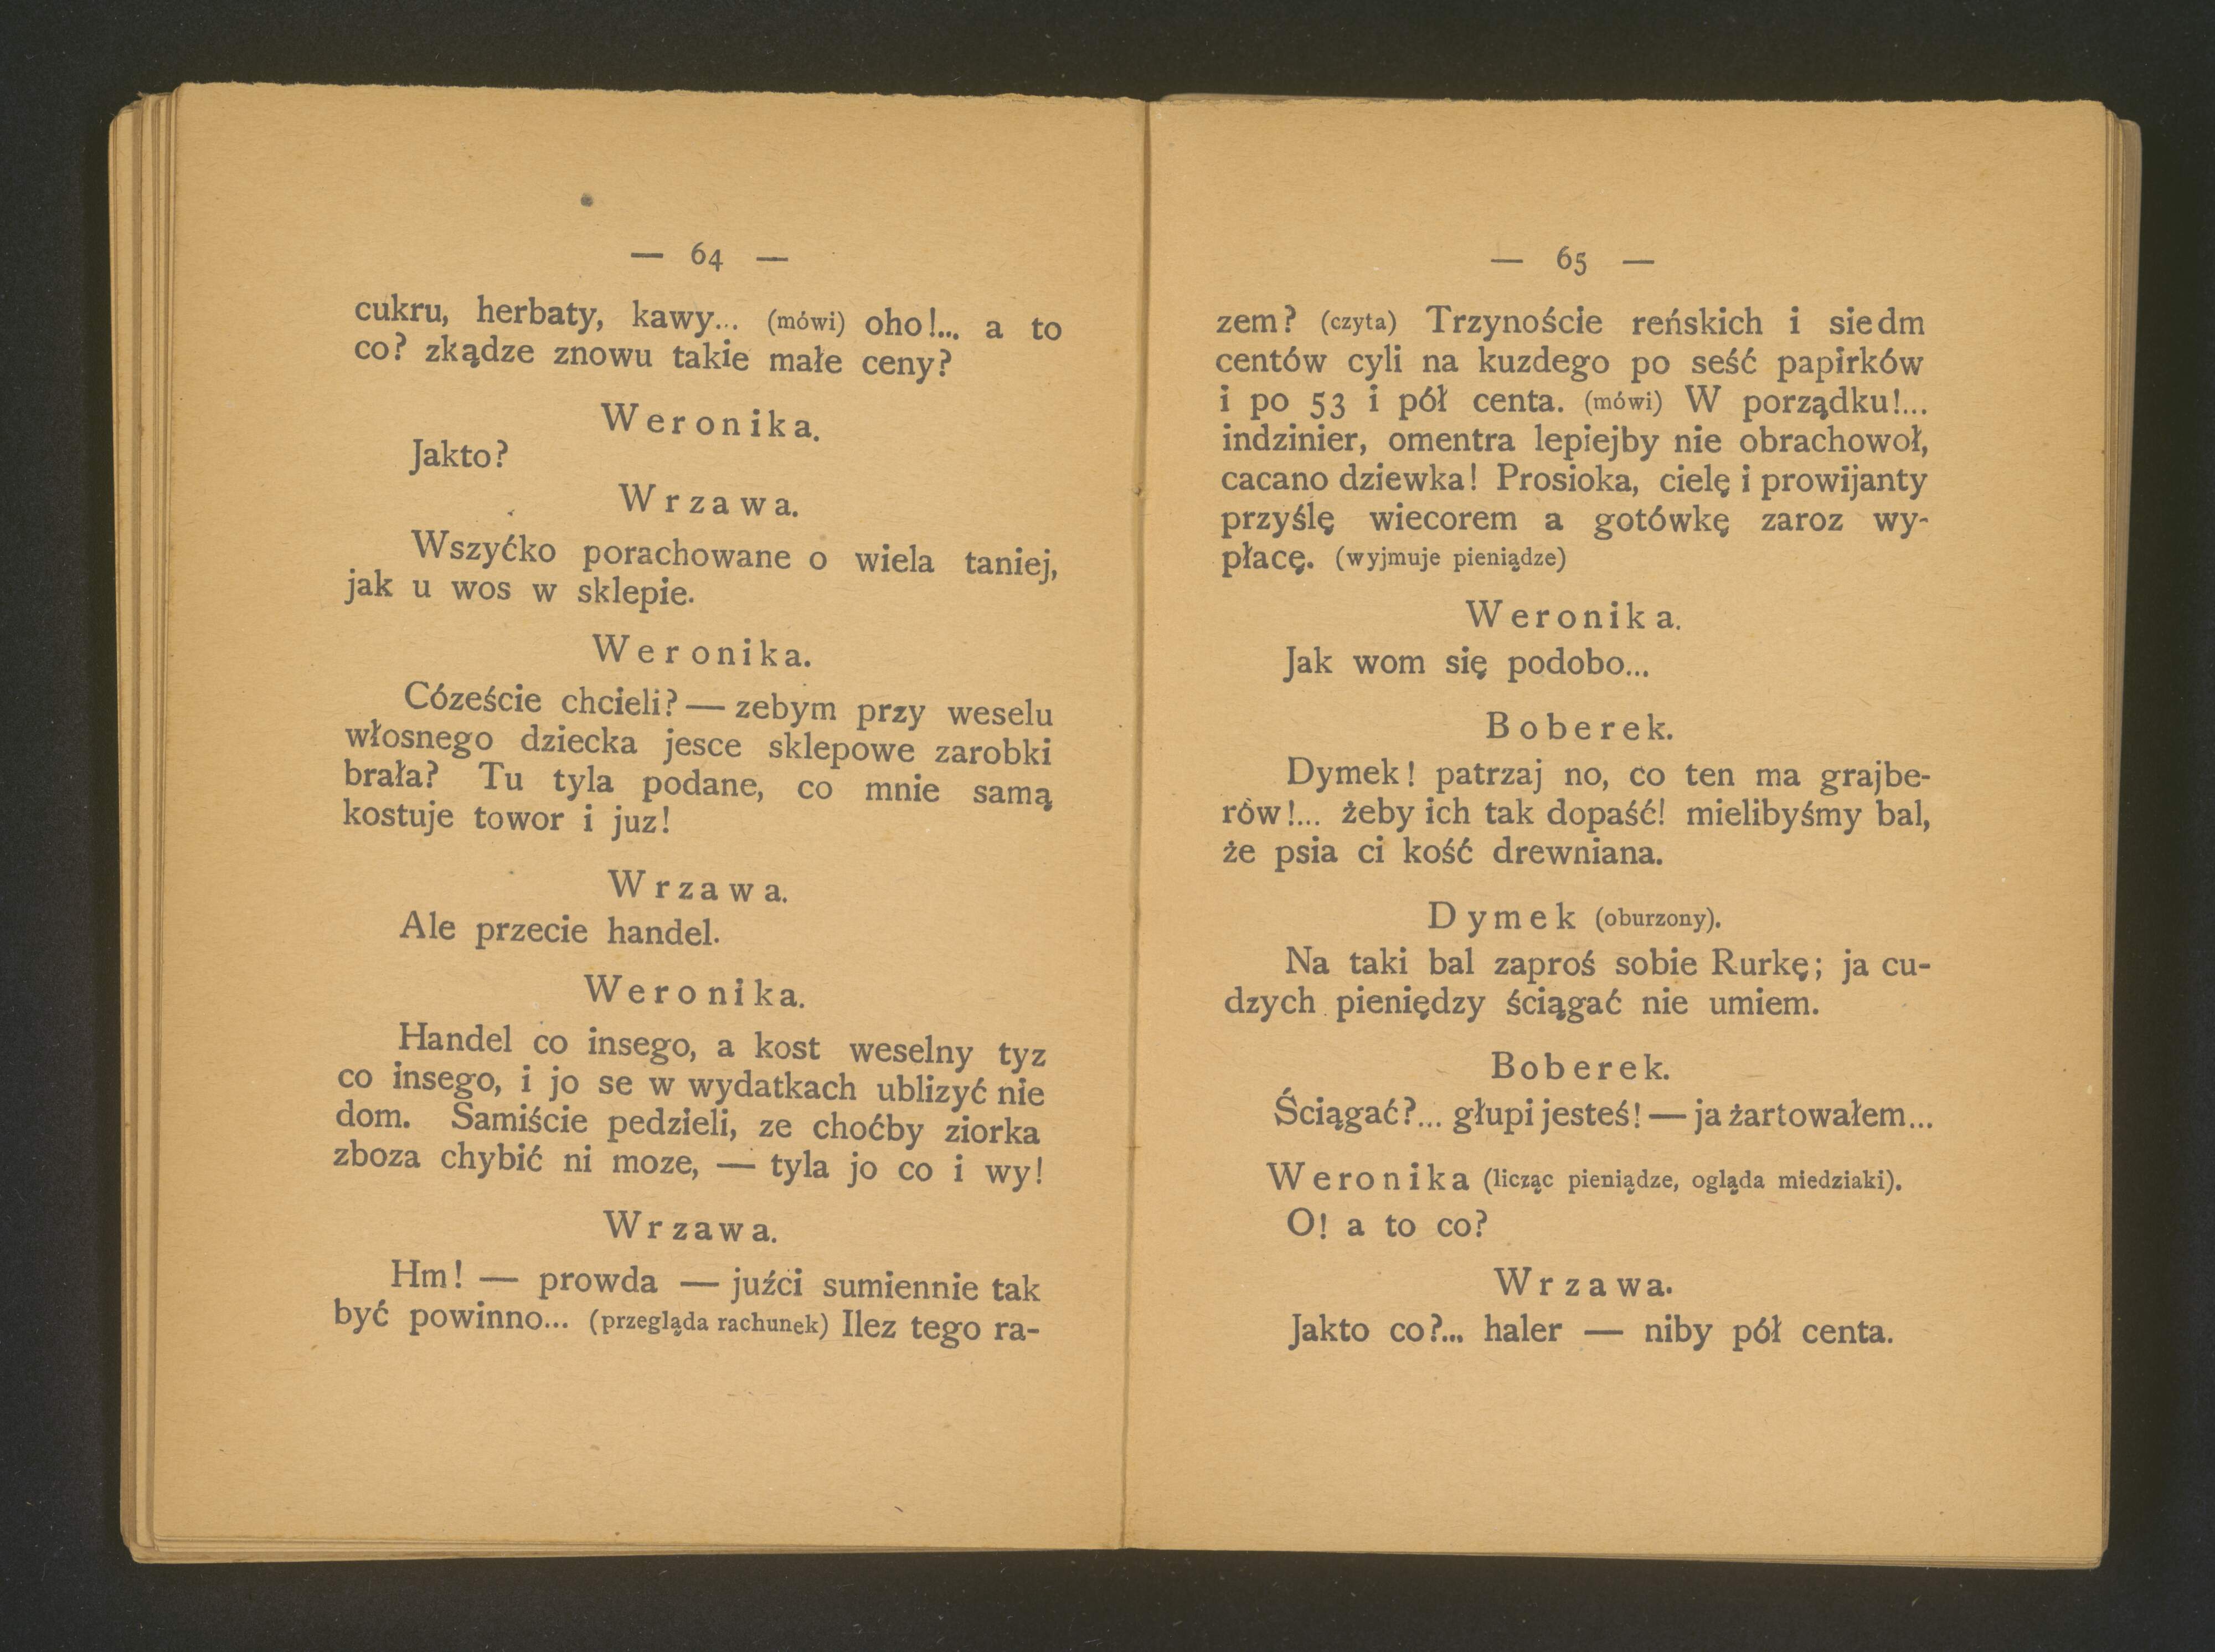 — 64 —
cukru, herbaty, kawy... (mówi) oho!... a to
co? zkądze znowu takie małe ceny?
Weronika.
Jakto?
Wrzawa.
Wszyćko porachowane o wiela taniej,
jak u wos w sklepie.
Weronika.
Cózeście chcieli? — zebym przy weselu
włosnego dziecka jesce sklepowe zarobki
brała? Tu tyla podane, co mnie samą
kostuje towor i juz!
Wrzawa.
Ale przecie handel.
Weronika.
Handel co insego, a kost weselny tyz
co insego, i jo se w wydatkach ublizyć nie
dom. Samiście pedzieli, ze choćby ziorka
zboza chybić ni moze, — tyla jo co i wy!
Wrzawa.
Hm! — prowda — juźci sumiennie tak
być powinno... (przegląda rachunek) Ilez tego ra-
— 65 —
zem? (czyta) Trzynoście reńskich i siedm
centów cyli na kuzdego po seść papirków
i po 53 i pół centa. (mówi) W porządku!...
indzinier, omentra lepiejby nie obrachowoł,
cacano dziewka! Prosioka, cielę i prowijanty
przyślę wiecorem a gotówkę zaroz wy-
płacę. (wyjmuje pieniądze)
Weronika.
Jak wom się podobo...
Boberek.
Dymek! patrzaj no, co ten ma grajbe-
rów!... żeby ich tak dopaść! mielibyśmy bal,
że psia ci kość drewniana.
Dymek (oburzony).
Na taki bal zaproś sobie Rurkę; ja cu-
dzych pieniędzy ściągać nie umiem.
Boberek.
Ściągać?... głupi jesteś! — ja żartowałem...
Weronika (licząc pieniądze, ogląda miedziaki).
O! a to co?
Wrzawa.
Jakto co?... haler — niby pół centa.